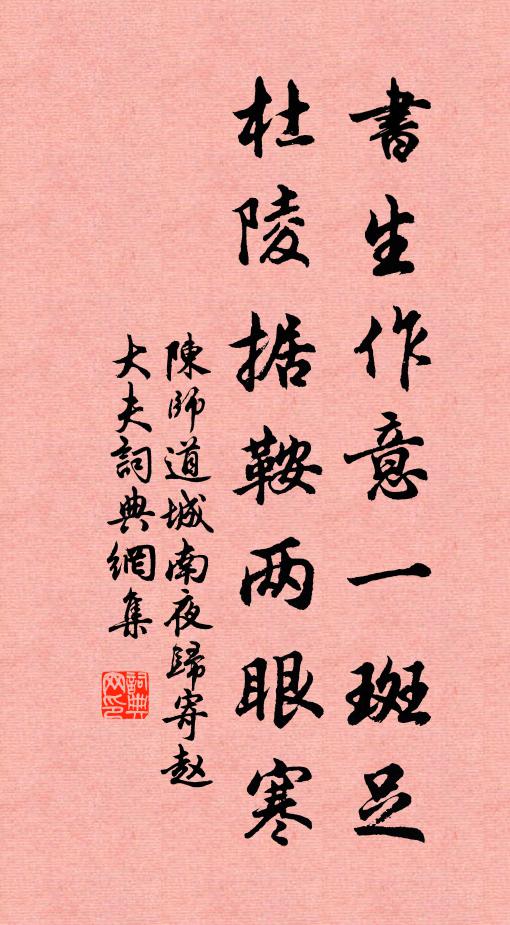 書生作意一斑足
杜陵据鞍两眼寒
陳師道城南夜歸寄赵
大夫詞典網集
詞典
网印